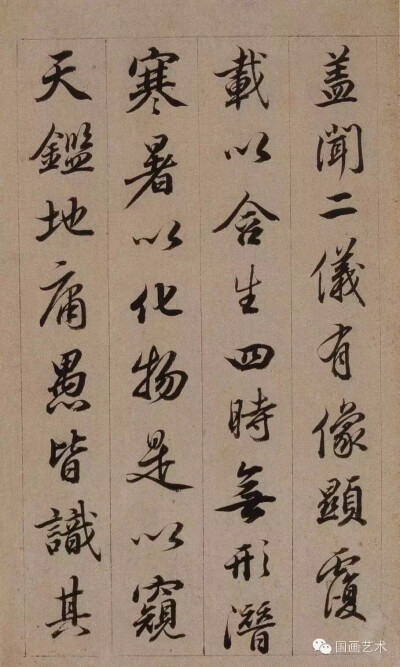 盖闻二儀有像顯覆
載以含生四時無形潛
寒暑以化物是以窺
天鑑地庸愚皆識其
国画艺术